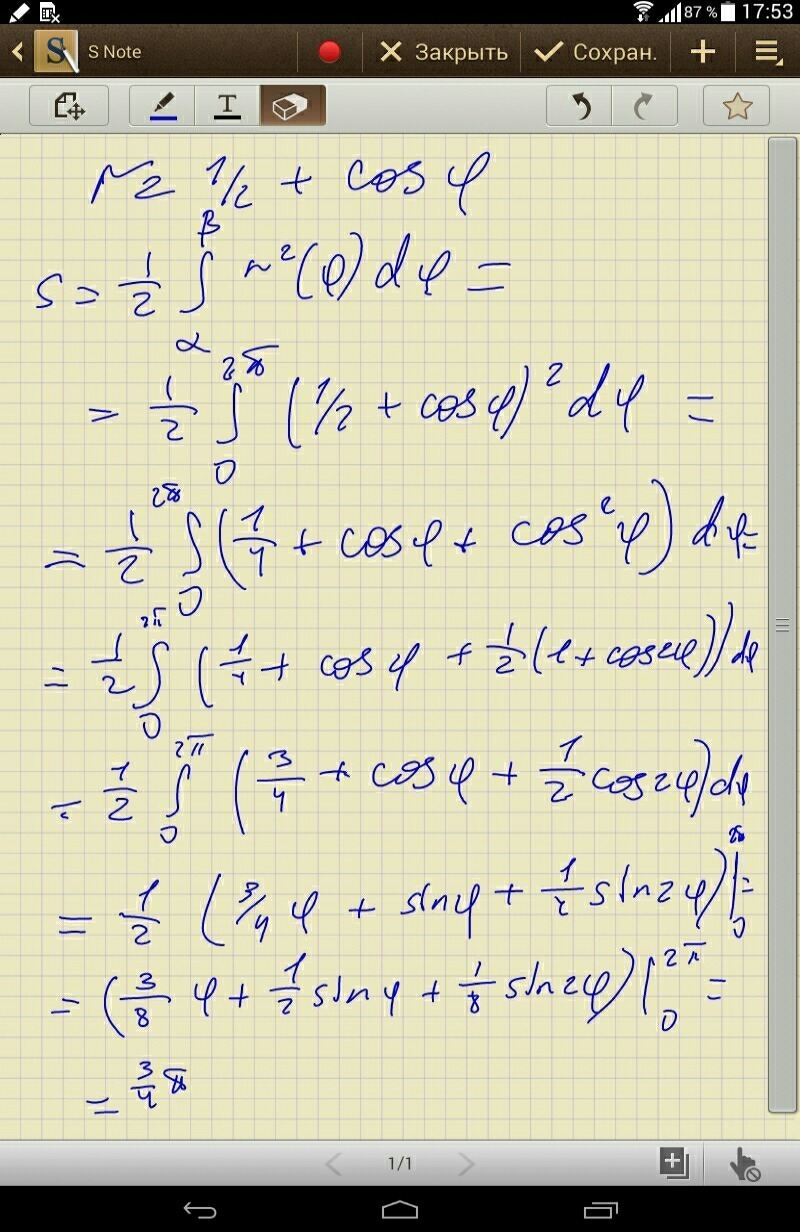 87 % 17:53
S Note Закрыть Сохран.
T
r = 1/2 + cos φ
S = 1/2 ∫_α^β r²(φ) dφ =
= 1/2 ∫_0^2π (1/2 + cosφ)² dφ =
= 1/2 ∫_0^2π (1/4 + cosφ + cos²φ) dφ =
= 1/2 ∫_0^2π (1/4 + cosφ + 1/2 (1 + cos2φ)) dφ
= 1/2 ∫_0^2π (3/4 + cosφ + 1/2 cos2φ) dφ
= 1/2 (3/4 φ + sinφ + 1/4 sin2φ)|_0^2π =
= (3/8 φ + 1/2 sinφ + 1/8 sin2φ)|_0^2π =
= 3/4 π
1/1